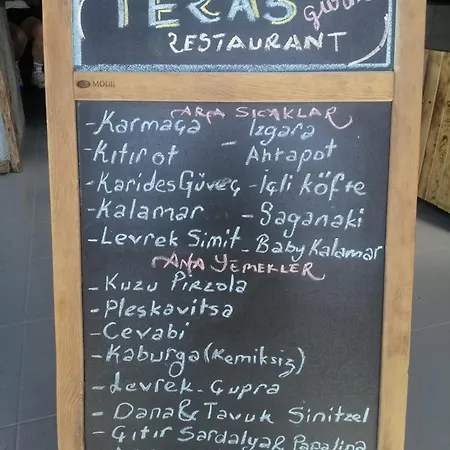 TERAS
RESTAURANT
MODE
ARA SICAKLAR
- Karmaça - Izgara Ahtapot
- Kıtır ot
- Karides Güveç - İçli Köfte
- Kalamar - Saganaki
- Levrek Simit - Baby Kalamar
ANA YEMEKLER
- Kuzu Pirzola
- Pleşkavitsa
- Cevabi
- Kaburga (Kemiksiz)
- Levrek - Çupra
- Dana & Tavuk Şinitzel
- Çıtır Sardalya & Papalina